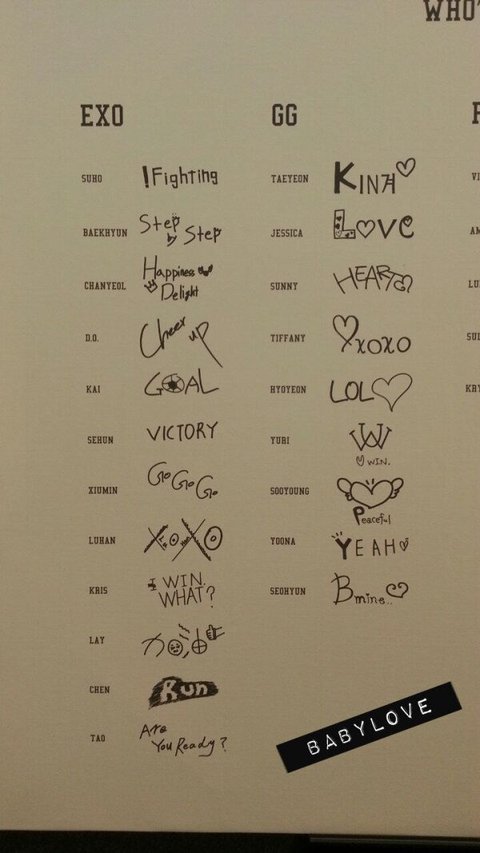 WHO'
EXO
SUHO !Fighting
BAEKHYUN Step by Step
CHANYEOL Happiness Delight
D.O. Cheer up
KAI GOAL
SEHUN VICTORY
XIUMIN Go Go Go
LUHAN XOXO
KRIS I WIN. WHAT?
LAY
CHEN Run
TAO Are You Ready?
GG
TAEYEON KINA
JESSICA LOVE
SUNNY HEART
TIFFANY xoxo
HYOYEON LOL
YURI W WIN.
SOOYOUNG Peaceful
YOONA YEAH
SEOHYUN B mine..
F
VI
AM
LU
SUL
KRY
BABYLOVE